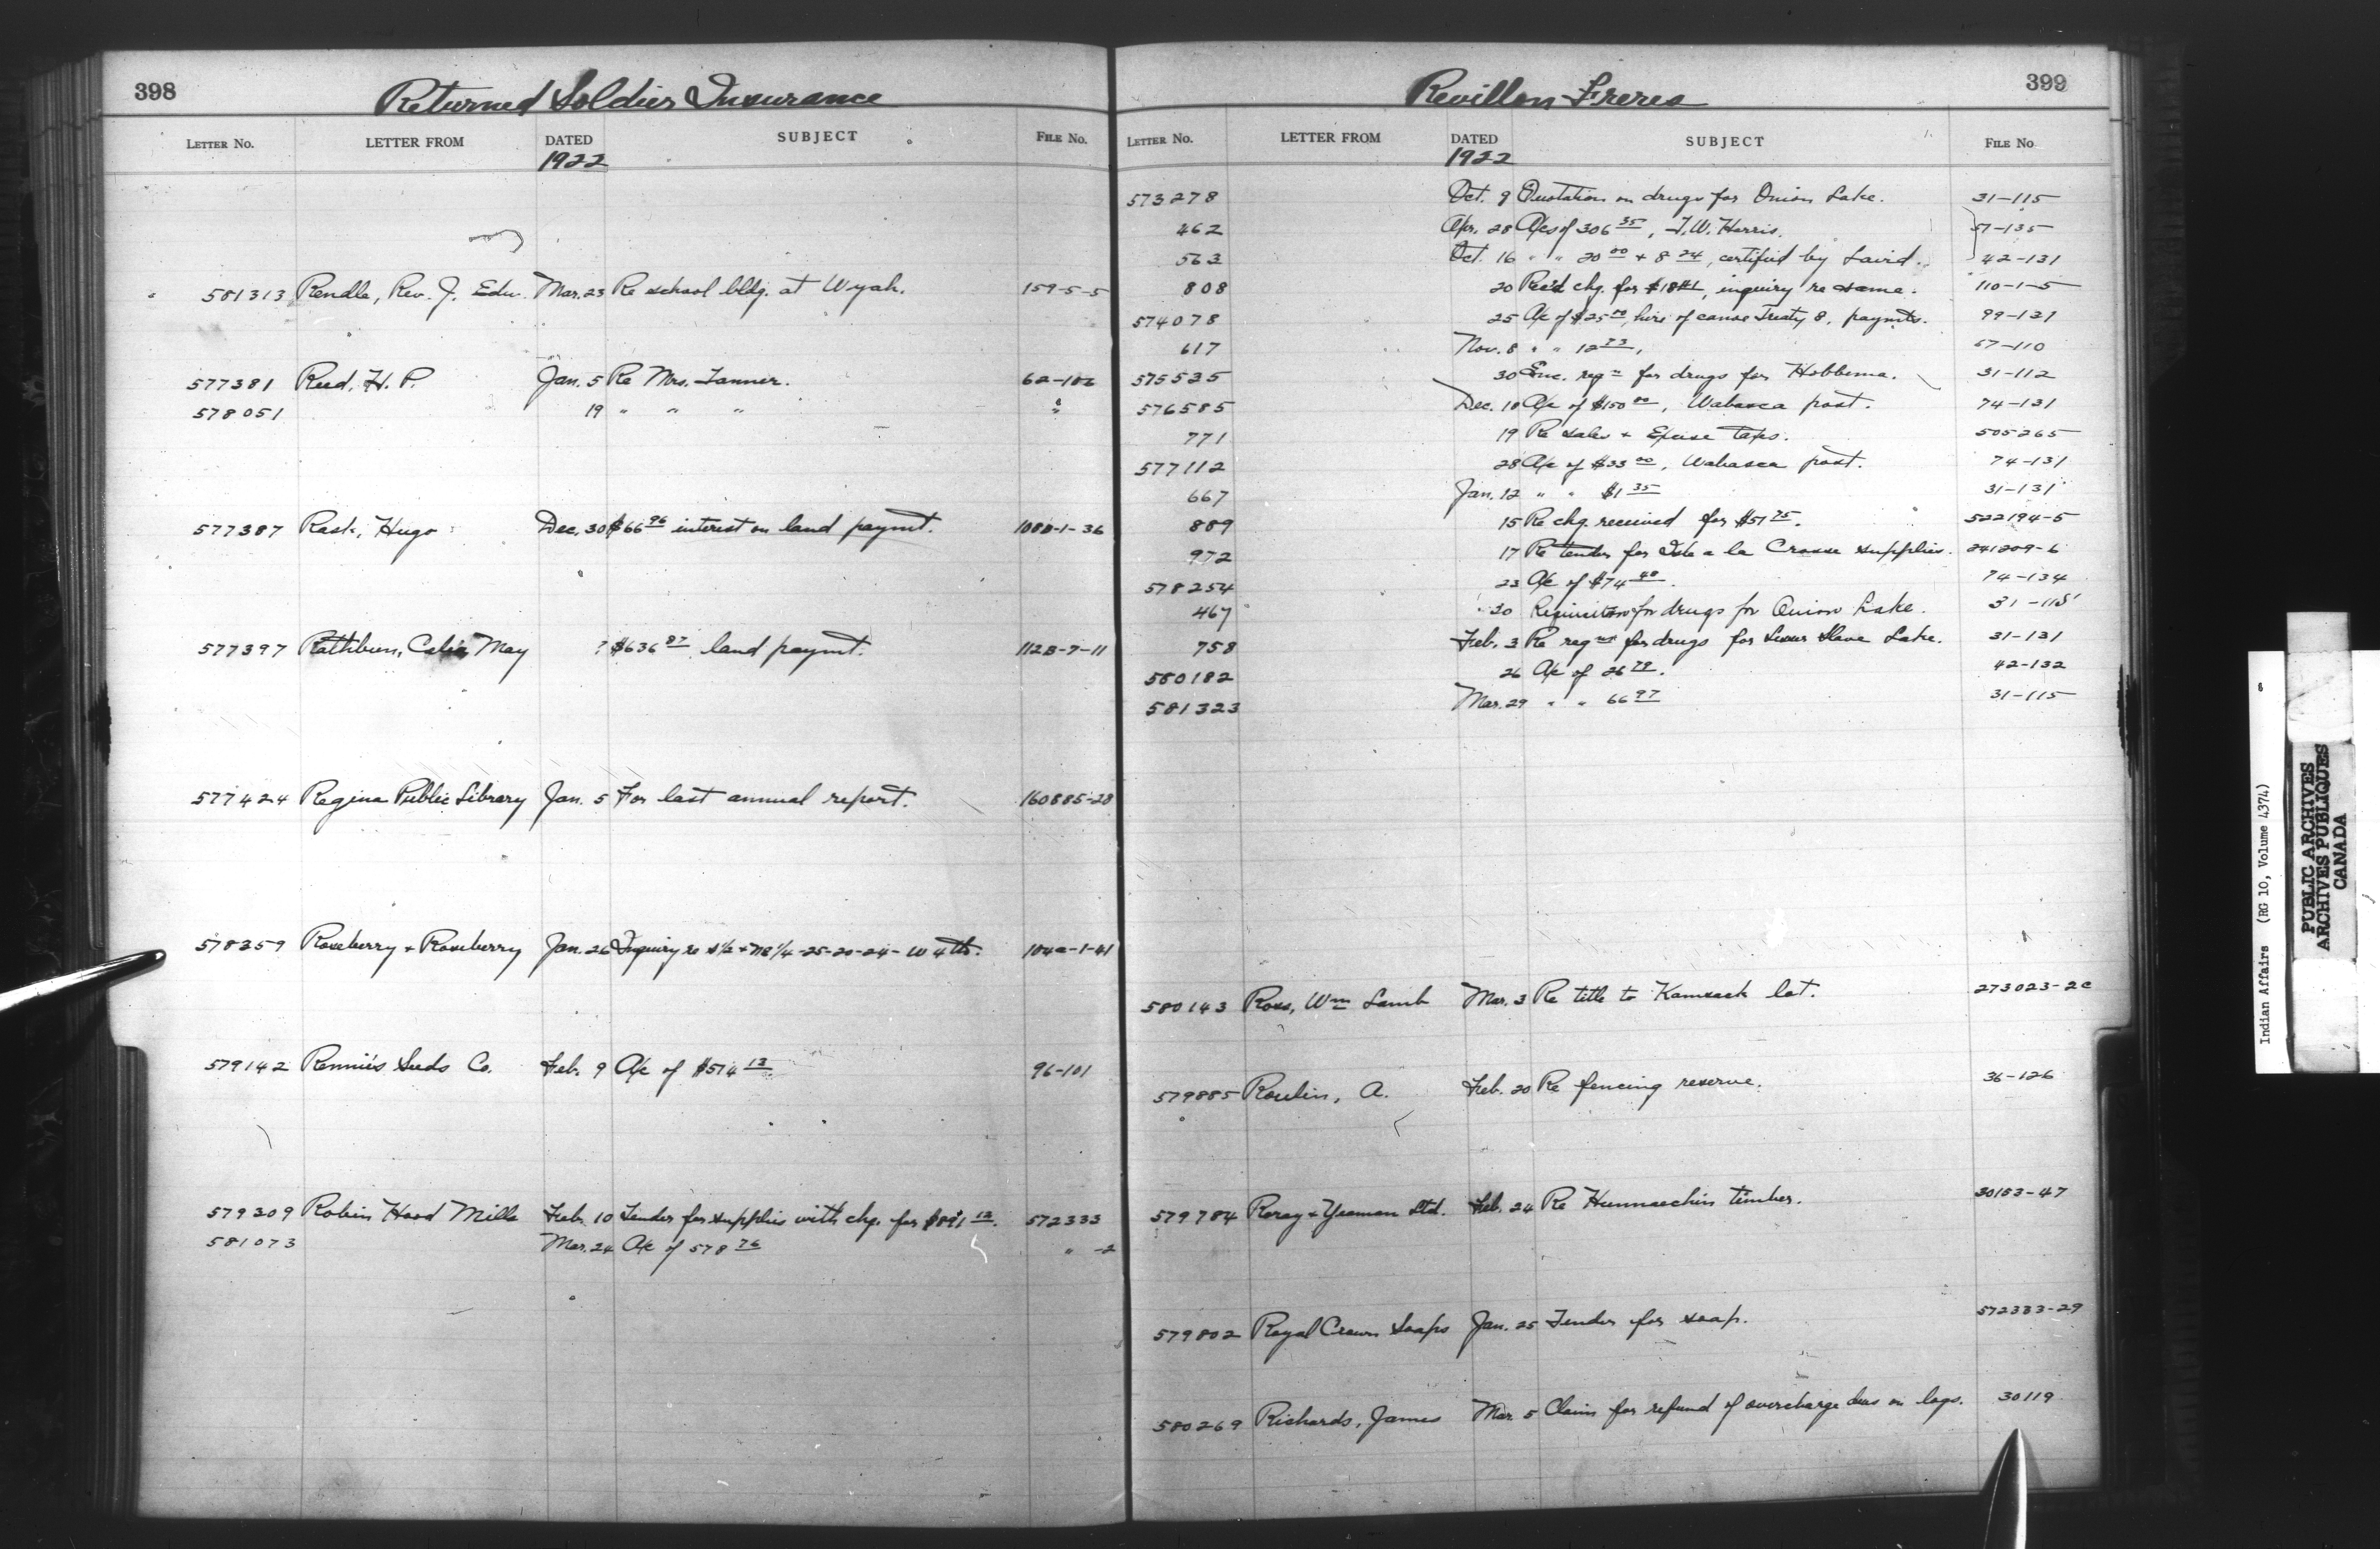 398
Returned Soldier Insurance
LETTER NO. LETTER FROM DATED SUBJECT FILE No.
1922
581313 Rendle, Rev. J. Edw. Mar. 23 Re school bldg. at Wyah. 159-5-5
577381 Reed, H. P. Jan. 5 Re Mrs. Tanner. 62-102
578051 19 " " " "
577387 Rask, Hugo Dec. 30 $66 96 interest on land paymt. 108B-1-36
577397 Rathbun, Celia May ? $636 87 land paymt. 112B-7-11
577424 Regina Public Library Jan. 5 For last annual report. 160885-28
578359 Roseberry + Roseberry Jan. 26 Inquiry re S½ + NE ¼-25-20-24-W 4th. 104a-1-41
579142 Rennie's Seeds Co. Feb. 9 A/c of $514 13 96-101
579309 Robin Hood Mills Feb. 10 Tender for supplies with chq. for $891 12. 572333
581073 Mar. 24 A/c of 578 76 " -2
Revillon Freres
399
LETTER NO. LETTER FROM DATED SUBJECT FILE No
1922
573278 Oct. 9 Quotation on drugs for Onion Lake. 31-115
462 Apr. 28 A/cs of 306 35, T. W. Harris. 57-135
563 Oct. 16 " " 20 00 + 8 24, certified by Laird. 42-131
808 20 Rec'd chq. for $18 41, inquiry re same. 110-1-5
574078 25 A/c of $25 00, hire of canoe Treaty 8, paymts. 99-131
617 Nov. 8 " " 12 73, 67-110
575535 30 Enc. reqn for drugs for Hobbema. 31-112
576585 Dec. 18 A/c of $150 00, Wabasca post. 74-131
771 19 Re sales + Excise taxes. 505265
577112 28 A/c of $33 00, Wabasca post. 74-131
667 Jan. 12 " " $1 35 31-131
889 15 Re chq. received for $51 75. 522194-5
972 17 Re tender for Isle a la Crosse supplies. 241209-6
578254 23 A/c of $74 40. 74-134
467 30 Requisition for drugs for Onion Lake. 31-115
758 Feb. 3 Re reqn for drugs for Lesser Slave Lake. 31-131
580182 26 A/c of 26 79. 42-132
581323 Mar. 29 " " 66 97 31-115
580143 Ross, Wm Lamb Mar. 3 Re title to Kamsack lot. 273023-2c
579885 Roulin, A. Feb. 20 Re fencing reserve. 36-126
579784 Roray + Yeoman Ltd. Feb. 24 Re Hunnaechin timber. 30153-47
579802 Royal Crown Soaps Jan. 25 Tender for soap. 572333-29
580269 Richards, James Mar. 5 Claim for refund of overcharge dues on logs. 30119
Indian Affairs (RG 10, Volume 4374)
PUBLIC ARCHIVES
ARCHIVES PUBLIQUES
CANADA